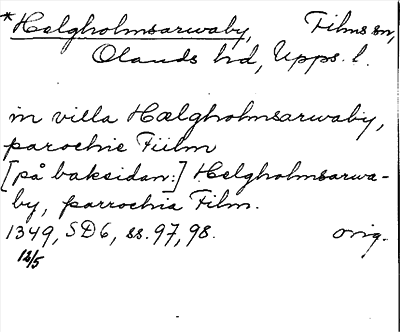 *Helgholmsarwaby, Films sn,
Olands hd, Upps. l.
in villa Hælgholmsarwaby,
parochie Fiilm
[på baksidan:] Helgholmsarwa-
by, parrochia Film.
1349, SD6, ss. 97, 98. orig.
12/5